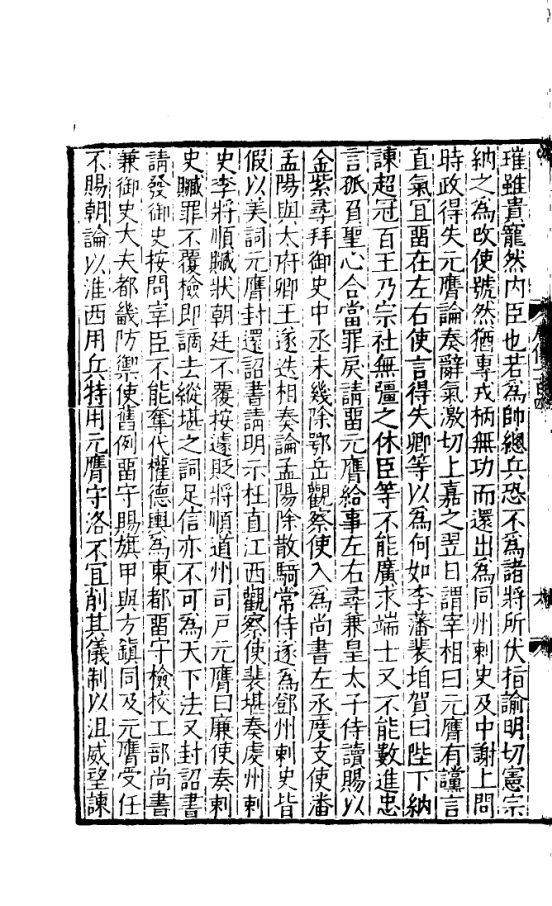 璀雖貴寵然内臣也若為帥總兵恐不為諸將所伏指諭明切憲宗
納之為改使號然猶專戎柄無功而還出為同州刺史及中謝上問
時政得失元膺論奏辭氣激切上嘉之翌日謂宰相曰元膺有讜言
直氣宜留在左右使言得失卿等以為何如李藩裴垍賀曰陛下納
諫超冠百王乃宗社無疆之休臣等不能廣求端士又不能數進忠
言孤負聖心合當罪戾請留元膺給事左右尋兼皇太子侍讀賜以
金紫尋拜御史中丞未幾除鄂岳觀察使入為尚書左丞度支使潘
孟陽與太府卿王遂迭相奏論孟陽除散騎常侍遂為鄧州刺史皆
假以美詞元膺封還詔書請明示枉直江西觀察使裴堪奏虔州刺
史李將順贓狀朝廷不覆按遽貶將順道州司戶元膺曰廉使奏刺
史贓罪不覆檢即謫去縱堪之詞足信亦不可為天下法又封詔書
請發御史按問宰臣不能奪代權德輿為東都留守檢校工部尚書
兼御史大夫都畿防禦使舊例留守賜旗甲與方鎮同及元膺受任
不賜朝論以淮西用兵特用元膺守洛不宜削其儀制以沮威望諫